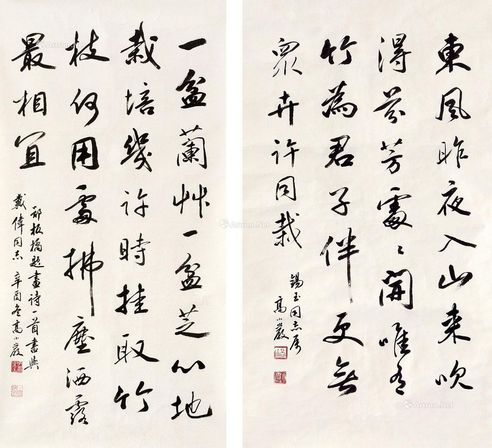 東風昨夜入山来吹
得芬芳處々開唯有
竹為君子伴更無
衆卉許同栽
錫玉同志属
高小巖
一盆蘭艸一盆芝心地
栽培幾許時挂取竹
枝何用處拂塵洒露
最相宜
郑板橋題畫诗一首書與
戴偉同志 辛酉冬高小巖